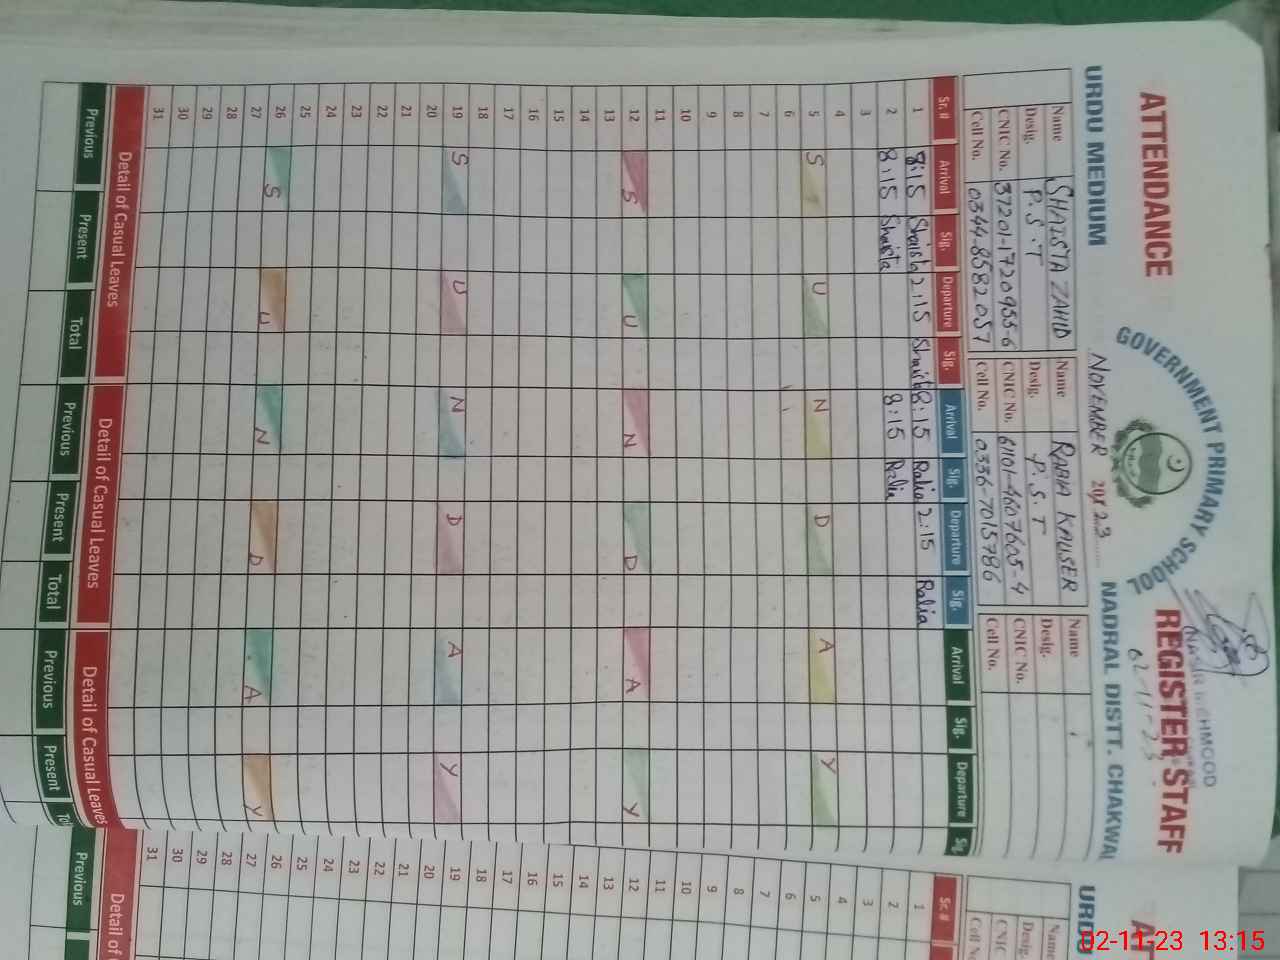 ATTENDANCE REGISTER, STAFF
GOVERNMENT PRIMARY SCHOOL
URDU MEDIUM NOVEMBER 2023 NADRAL DISTT. CHAKWAL
02-11-23
Name SHAISTA ZAHID Name RABIA KAUSER Name
Desig. P.S.T Desig. P.S.T Desig.
CNIC No. 37201-1720955-6 CNIC No. 61101-4607605-4 CNIC No.
Cell No. 0344-8582057 Cell No. 0336-7015786 Cell No.
Sr.# Arrival Sig. Departure Sig. Arrival Sig. Departure Sig. Arrival Sig. Departure Sig.
1 8:15 Shaista 2:15 Shaista 8:15 Rabia 2:15 Rabia
2 8:15 Shaista 8:15 Rabia
3
4
5 S U N D A Y
6
7
8
9
10
11
12 S U N D A Y
13
14
15
16
17
18
19 S U N D A Y
20
21
22
23
24
25
26 S U N D A Y
27
28
29
30
31
Detail of Casual Leaves Detail of Casual Leaves Detail of Casual Leaves
Previous Present Total Previous Present Total Previous Present
URDU
Sr.#
Name
Desig.
CNIC
Cell No.
1
2
3
4
5
6
7
8
9
10
11
12
13
14
15
16
17
18
19
20
21
22
23
24
25
26
27
28
29
30
31
Detail of
Previous
02-11-23 13:15